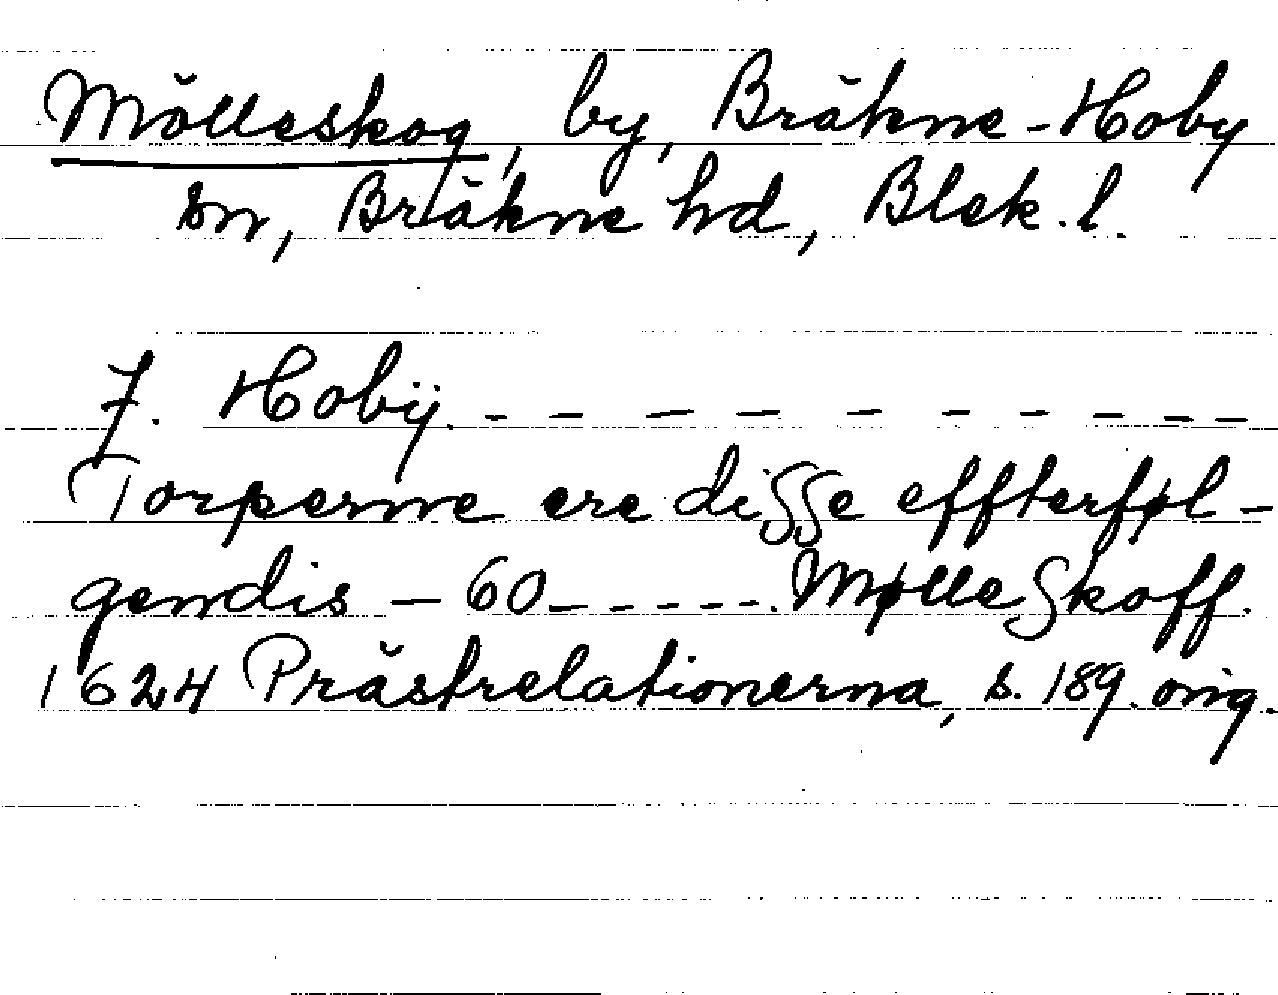 Mölleskog, by, Bräkne-Hoby
sn, Bräkne hd, Blek. l.
J. Hobÿ. - - - - - - - - - -
Torperne ere disse effterføl-
gendis - 60 - - - - - . Mølle Skoff.
1624 Prästrelationerna, s. 189. orig.